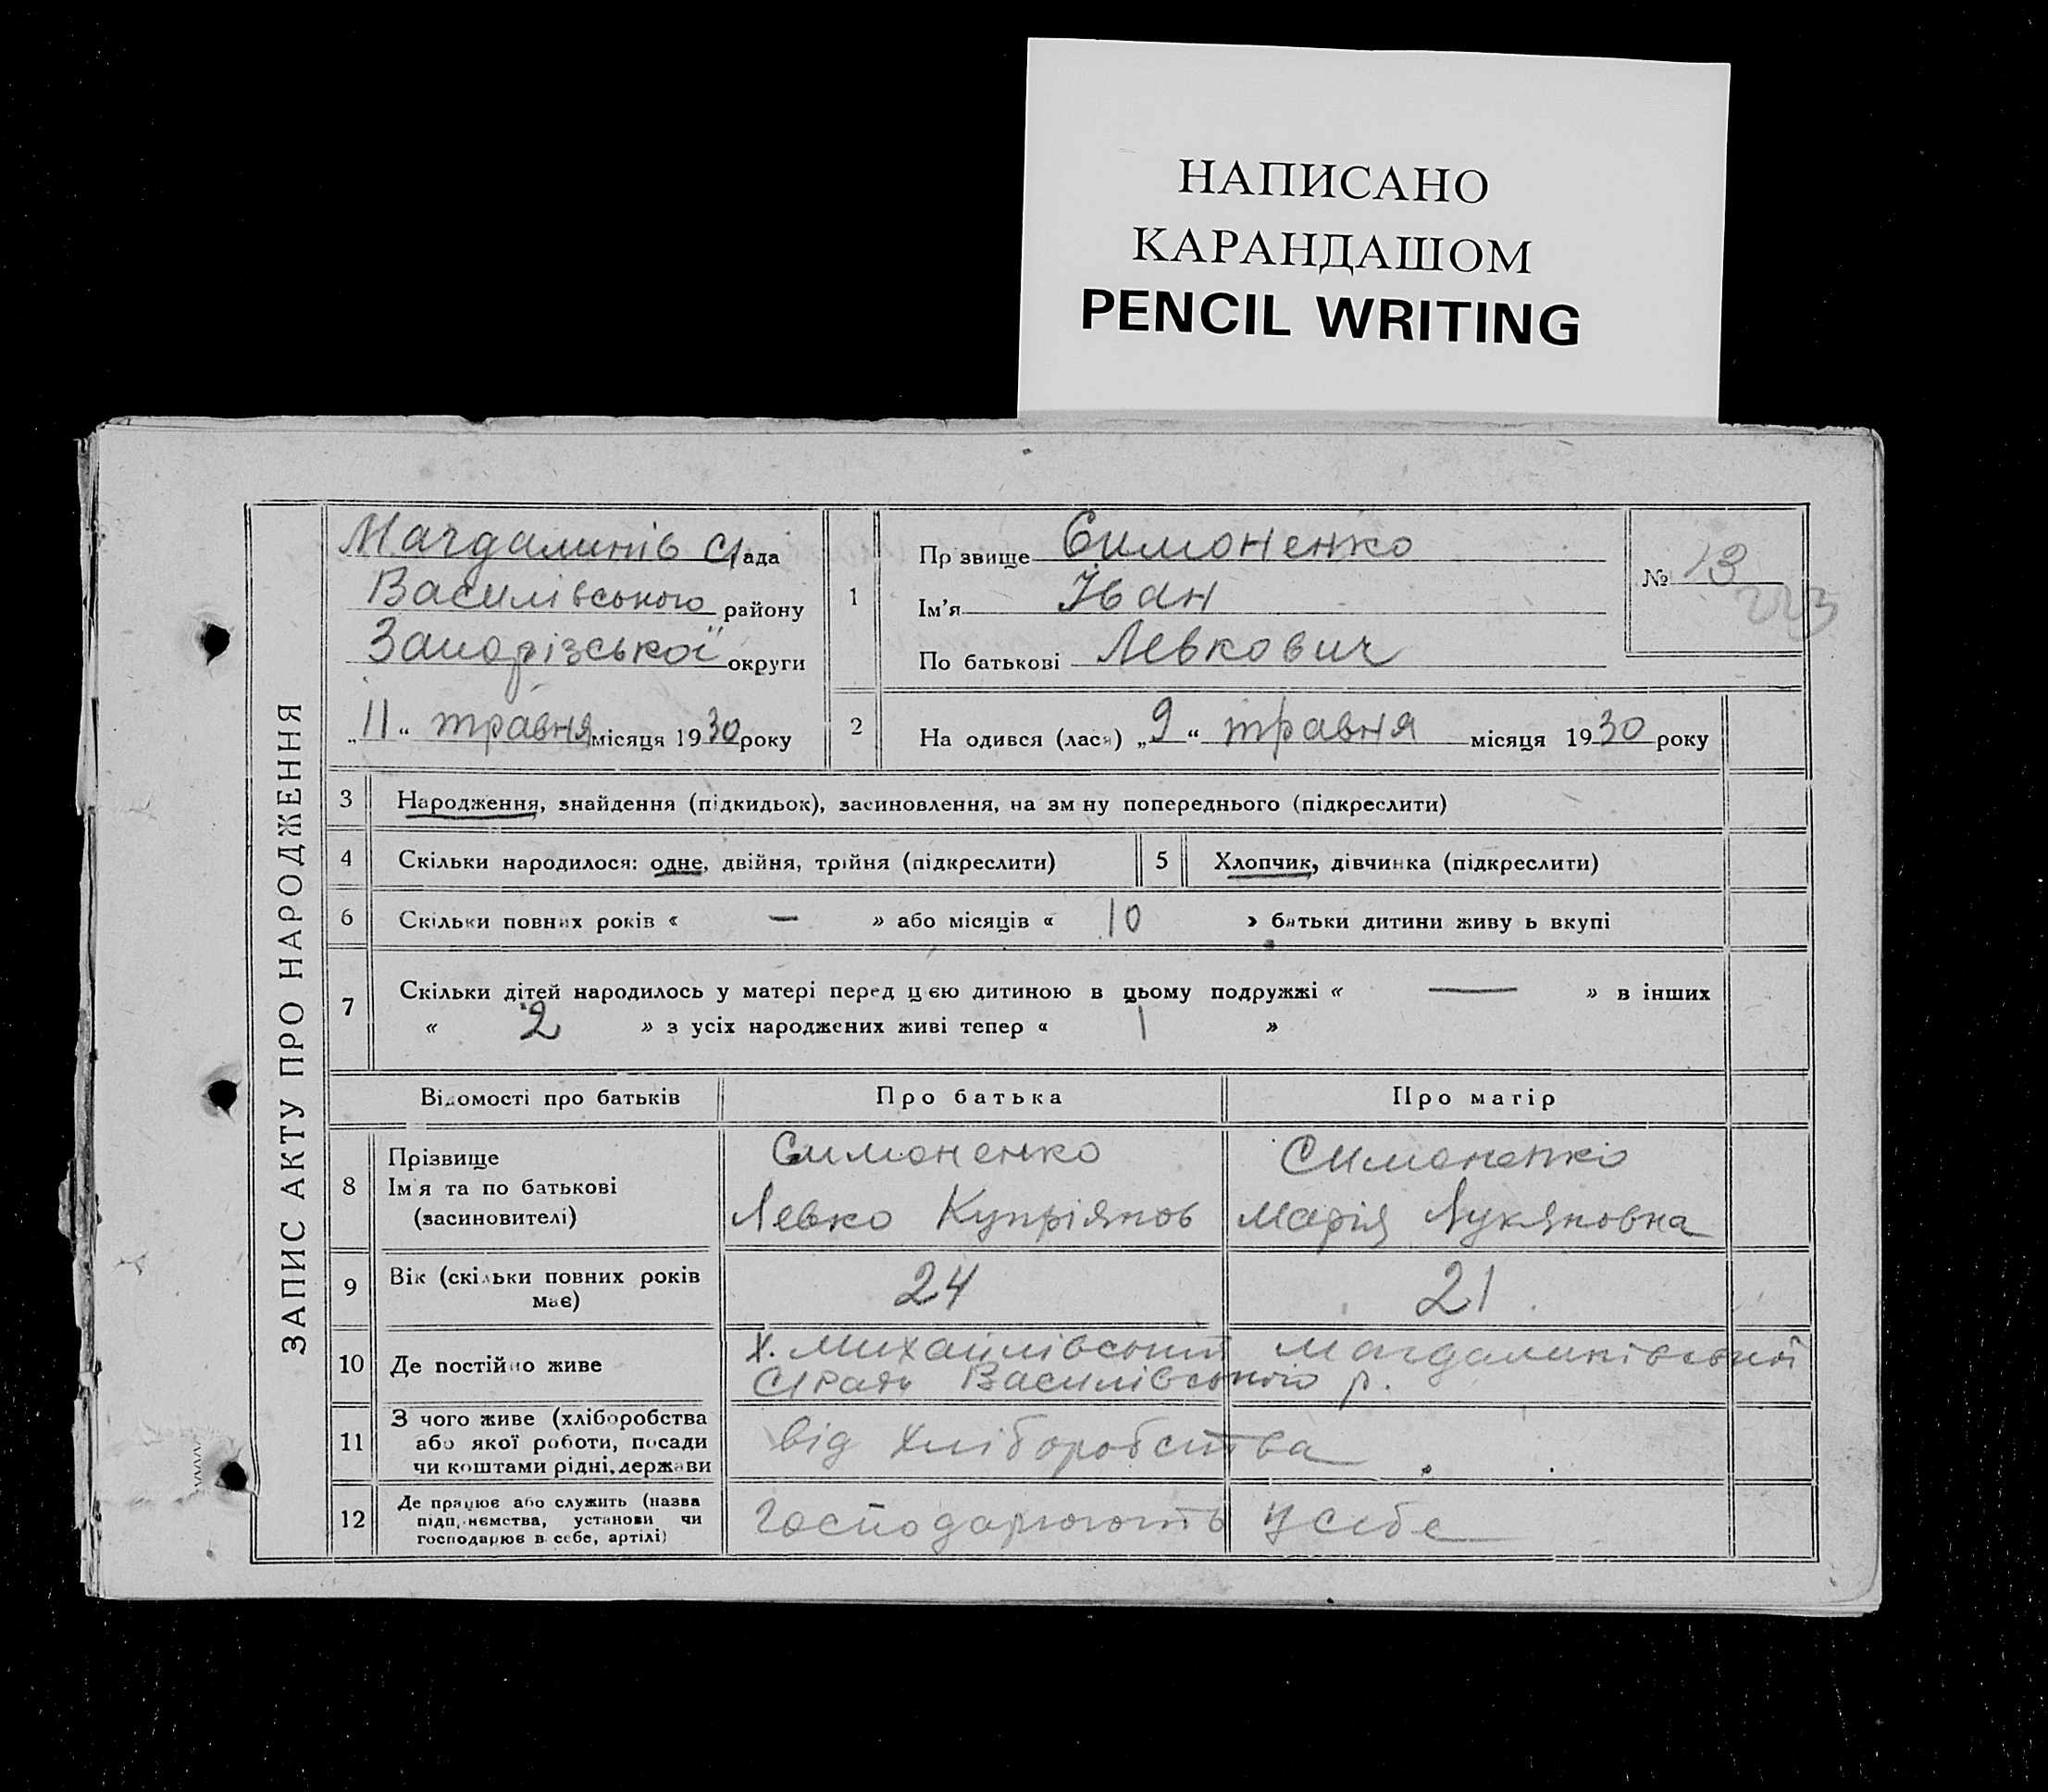 НАПИСАНО
КАРАНДАШОМ
PENCIL WRITING
ЗАПИС АКТУ ПРО НАРОДЖЕННЯ
Магдалинів С/ада
Василівського району
Запорізької округи
„11“ травня місяця 1930 року
1
Пр звище Симоненко
Ім’я Іван
По батькові Левкович
№ 13
223
2 На одився (лася) „9“ травня місяця 1930 року
3 Народження, знайдення (підкидьок), засиновлення, на зм ну попереднього (підкреслити)
4 Скільки народилося: одне, двійня, трійня (підкреслити) 5 Хлопчик, дівчинка (підкреслити)
6 Скільки повних років « — » або місяців « 10 » батьки дитини живу ь вкупі
7 Скільки дітей народилось у матері перед цією дитиною в цьому подружжі « — » в інших
« 2 » з усіх народжених живі тепер « 1 »
Відомості про батьків Про батька Про матір
8 Прізвище Симоненко Симоненко
Ім’я та по батькові
(засиновителі) Левко Купріянов Марія Лукяновна
9 Вік (скільки повних років
має) 24 21
10 Де постійно живе х. Михайлівський Магдалинівської
С/Ради Василівського р.
11 З чого живе (хліборобства
або якої роботи, посади від хліборобства
чи коштами рідні, держави
12 Де працює або служить (назва
підп, немства, установи чи господарюють у себе
господарює в себе, артілі)